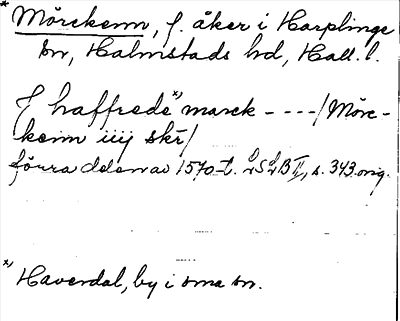 * Mörckemn, f. åker i Harplinge
sn, Halmstads hd, Hall. l.
J haffrede x) marck ----/Mörc-
keim iiij skr/
förra delen av 1570-t. LSLB II, s. 343. orig.
x) Haverdal, by i sma sn.